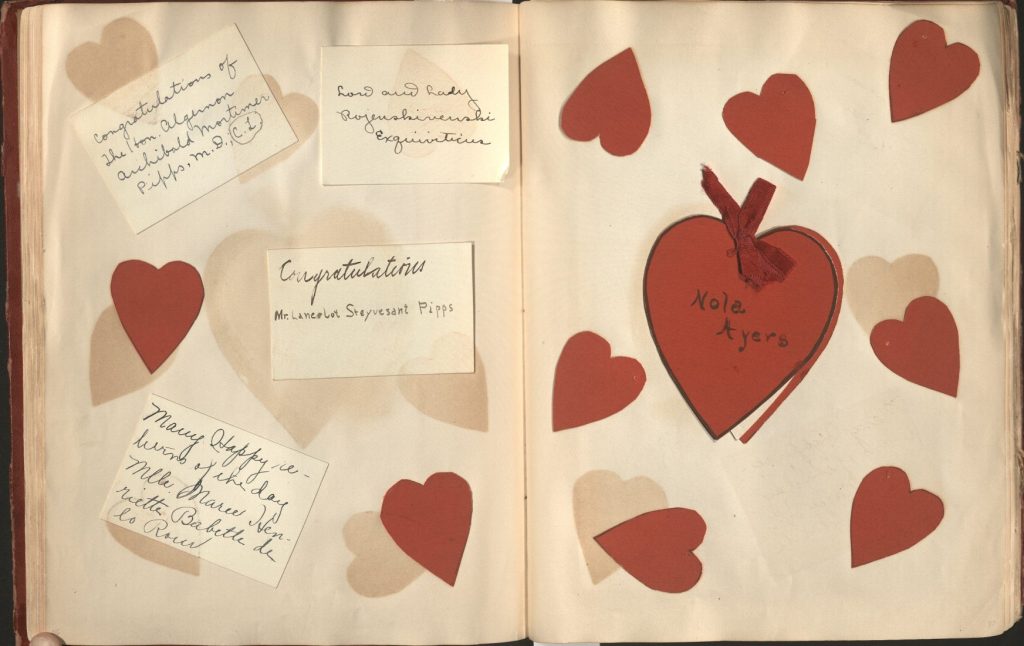 Congratulations of
The Hon. Algernon
Archibald Mortimer
Pipps, M.D., C.L
Lord and Lady
Rojenskivenski
Exquiviticus
Congratulations
Mr. Lancelot Steyvesant Pipps
Many Happy re-
turns of the day
Mlle. Maree Hen-
riette Babette de
lo Roux
Nola
Ayers